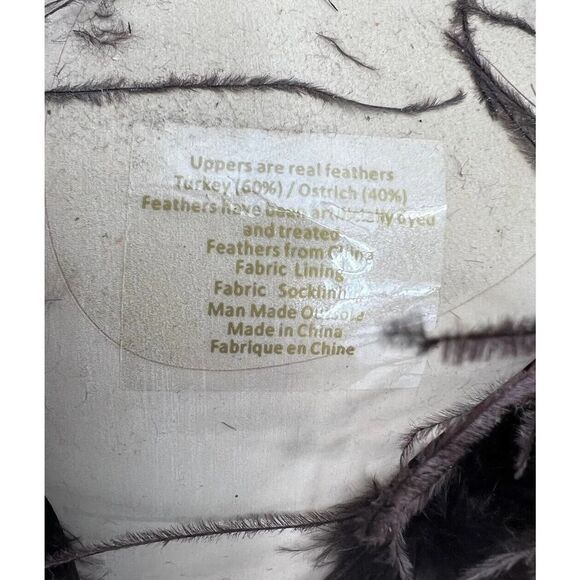 Uppers are real feathers
Turkey (60%) / Ostrich (40%)
Feathers have been artificially dyed
and treated
Feathers from China
Fabric Lining
Fabric Socklining
Man Made Outsole
Made in China
Fabrique en Chine